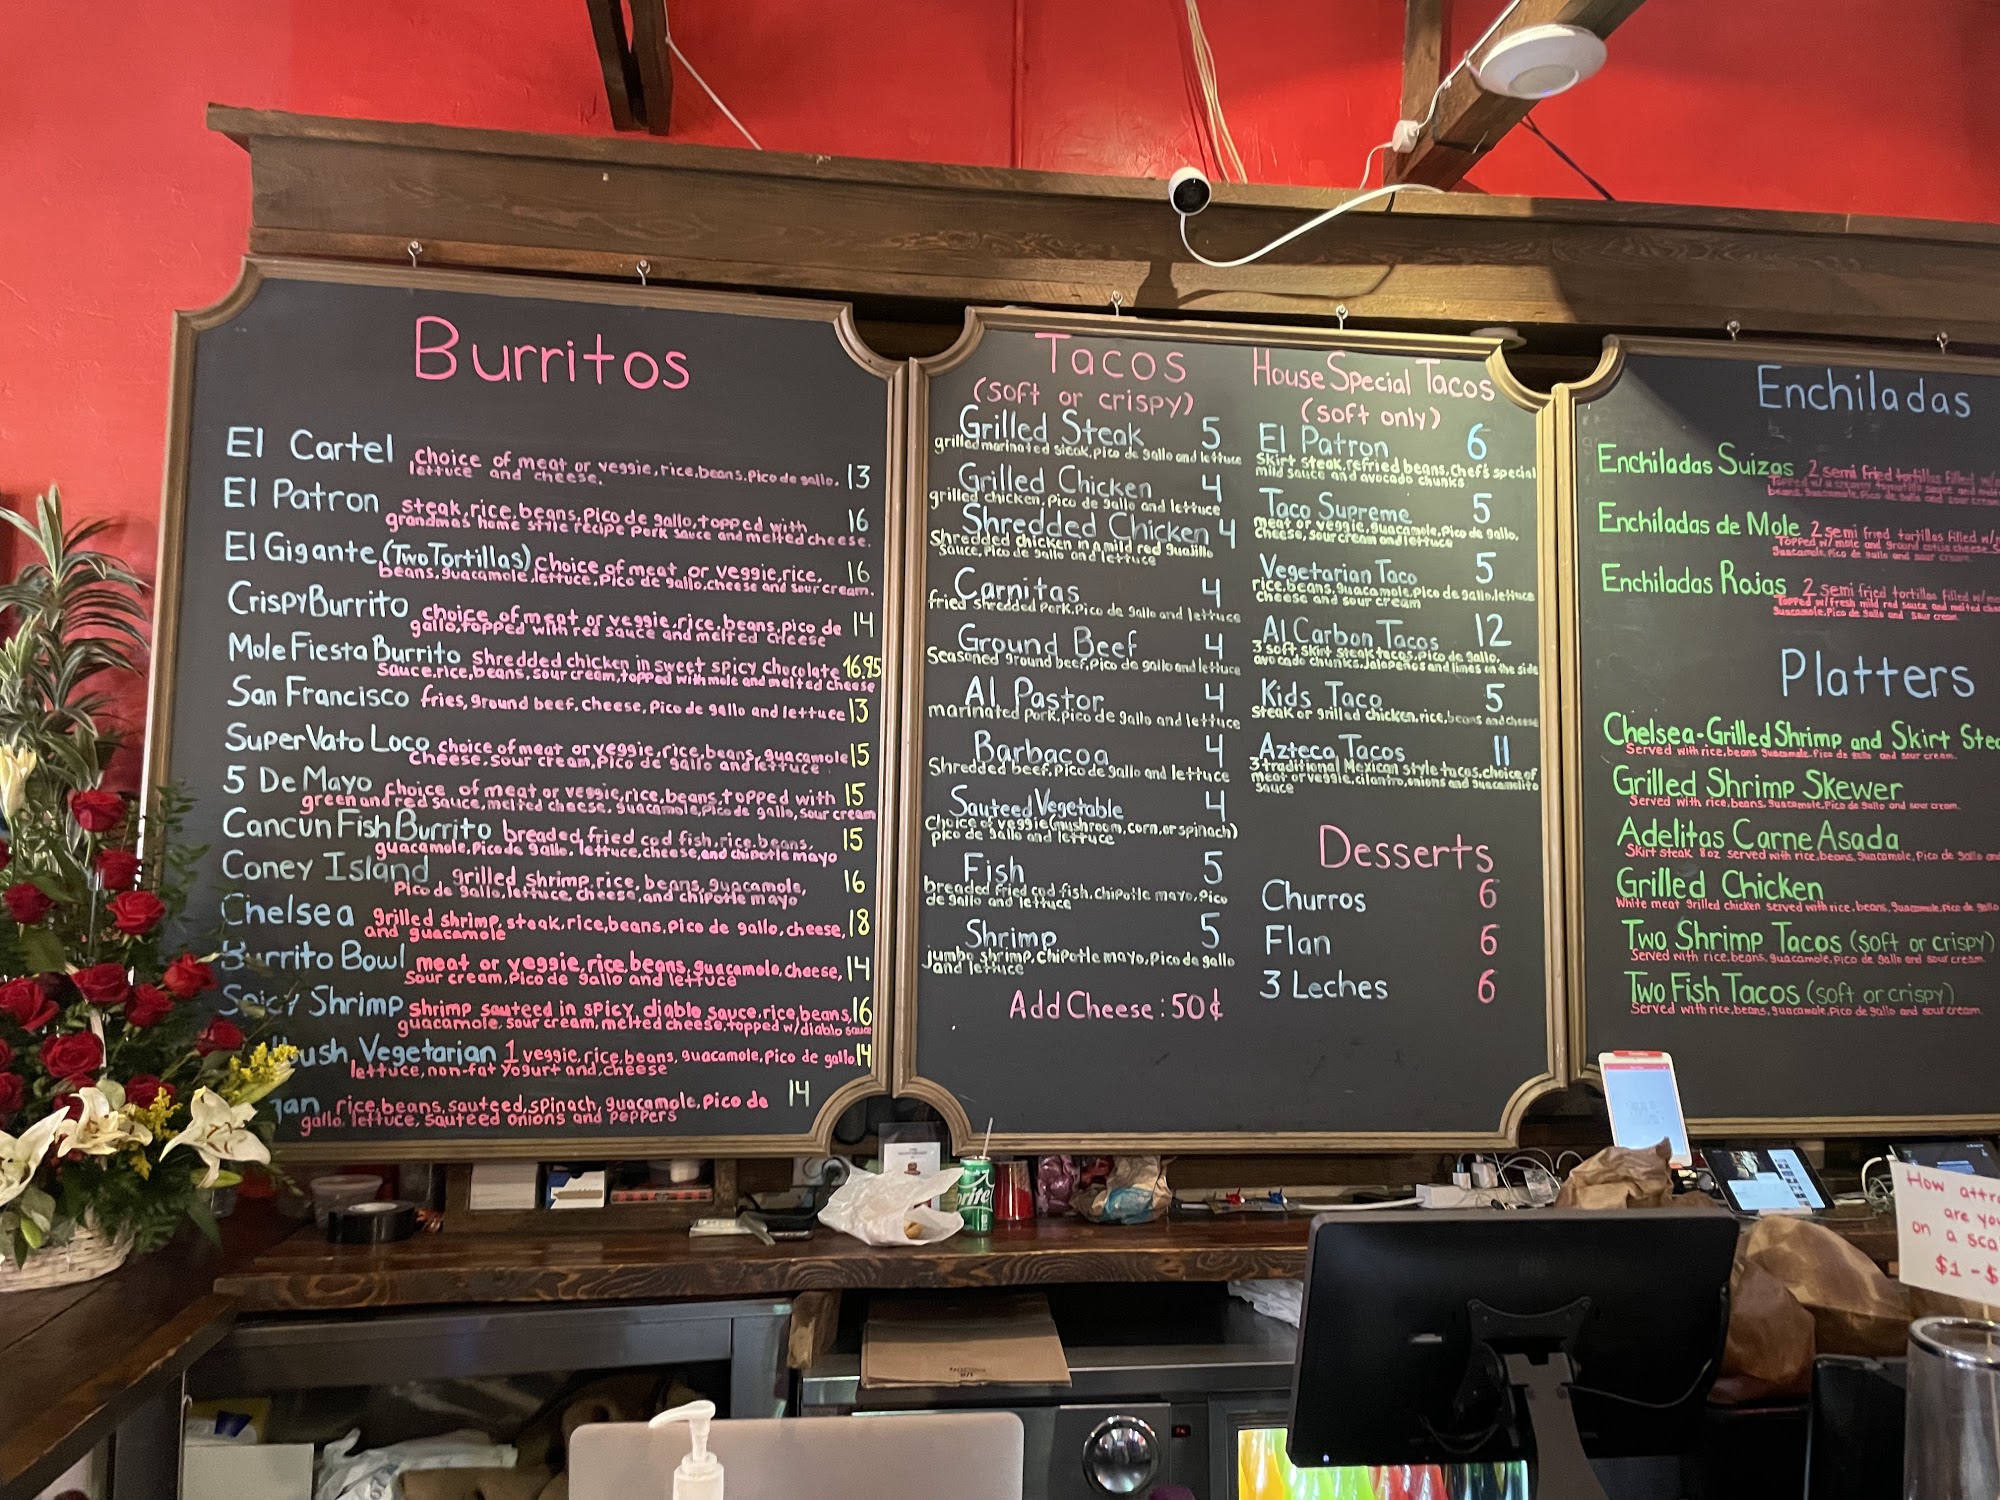 Burritos
El Cartel choice of meat or veggie, rice, beans, Pico de gallo, 13
lettuce and cheese.
El Patron steak, rice, beans, Pico de gallo, topped with 16
grandmas home style recipe pork sauce and melted cheese.
El Gigante (Two Tortillas) Choice of meat or veggie, rice, 16
beans, guacamole, lettuce, Pico de gallo, cheese and sour cream.
Crispy Burrito choice of meat or veggie, rice, beans, pico de 14
gallo, topped with red sauce and melted cheese
Mole Fiesta Burrito shredded chicken in sweet spicy chocolate 16.95
sauce, rice, beans, sour cream, topped with mole and melted cheese
San Francisco fries, ground beef, cheese, Pico de gallo and lettuce 13
Super Vato Loco choice of meat or veggie, rice, beans, guacamole 15
cheese, sour cream, Pico de gallo and lettuce
5 De Mayo choice of meat or veggie, rice, beans, topped with 15
green and red sauce, melted cheese, guacamole, Pico de gallo, sour cream
Cancun Fish Burrito breaded, fried cod fish, rice, beans, 15
guacamole, Pico de gallo, lettuce, cheese, and chipotle mayo
Coney Island grilled shrimp, rice, beans, guacamole, 16
Pico de gallo, lettuce, cheese, and chipotle mayo
Chelsea grilled shrimp, steak, rice, beans, Pico de gallo, cheese, 18
and guacamole
Burrito Bowl meat or veggie, rice, beans, guacamole, cheese, 14
Sour cream, Pico de gallo and lettuce
Spicy Shrimp shrimp sauteed in spicy, diablo sauce, rice, beans, 16
guacamole, sour cream, melted cheese, topped w/diablo sauce
Vegetarian 1 veggie, rice, beans, guacamole, Pico de gallo 14
lettuce, non-fat yogurt and, cheese
rice, beans, sauteed, spinach, guacamole, Pico de 14
gallo, lettuce, sauteed onions and peppers
Tacos
(soft or crispy)
Grilled Steak 5
grilled marinated steak, pico de gallo and lettuce
Grilled Chicken 4
grilled chicken, Pico de gallo and lettuce
Shredded Chicken 4
Shredded chicken in a mild red guajillo
Sauce, Pico de gallo and lettuce
Carnitas 4
fried shredded Pork, Pico de gallo and lettuce
Ground Beef 4
Seasoned ground beef, Pico de gallo and lettuce
Al Pastor 4
marinated Pork, pico de gallo and lettuce
Barbacoa 4
Shredded beef, Pico de gallo and lettuce
Sauteed Vegetable 4
Choice of veggie (mushroom, corn, or spinach)
pico de gallo and lettuce
Fish 5
breaded fried cod fish, chipotle mayo, Pico
de gallo and lettuce
Shrimp 5
jumbo shrimp, chipotle mayo, Pico de gallo
and lettuce
Add Cheese: 50¢
House Special Tacos
(soft only)
El Patron 6
Skirt steak, refried beans, chef's special
mild sauce and avocado chunks
Taco Supreme 5
meat or veggie, guacamole, Pico de gallo,
Cheese, sour cream and lettuce
Vegetarian Taco 5
rice, beans, guacamole, pico de gallo, lettuce
cheese and sour cream
Al Carbon Tacos 12
3 soft skirt steak tacos, pico de gallo,
avocado chunks, Jalapeños and limes on the side
Kids Taco 5
Steak or grilled chicken, rice, beans and cheese
Azteca Tacos 11
3 traditional Mexican style tacos, choice of
meat or veggie, cilantro, onions and guacamolito
sauce
Desserts
Churros 6
Flan 6
3 Leches 6
Enchiladas
Enchiladas Suizas 2 semi fried tortillas filled
Topped w/ a creamy tomatillo sauce and
beans, guacamole, Pico de gallo and sour cream
Enchiladas de Mole 2 semi fried tortillas filled
Topped w/ mole and ground cotija cheese
guacamole, Pico de gallo and sour cream
Enchiladas Rojas 2 semi fried tortillas filled
Topped w/ fresh mild red sauce and melted
guacamole, Pico de gallo and sour cream
Platters
Chelsea-Grilled Shrimp and Skirt
Served with rice, beans guacamole, Pico de gallo and sour cream.
Grilled Shrimp Skewer
Served with rice, beans, guacamole, Pico de gallo and sour cream.
Adelitas Carne Asada
Skirt steak 8oz served with rice, beans, guacamole, Pico de gallo and
Grilled Chicken
White meat grilled chicken served with rice, beans, guacamole, Pico de gallo
Two Shrimp Tacos (soft or crispy)
Served with rice, beans, guacamole, Pico de gallo and sour cream.
Two Fish Tacos (soft or crispy)
Served with rice, beans, guacamole, Pico de gallo and sour cream.
How
are
on a
$1 - $